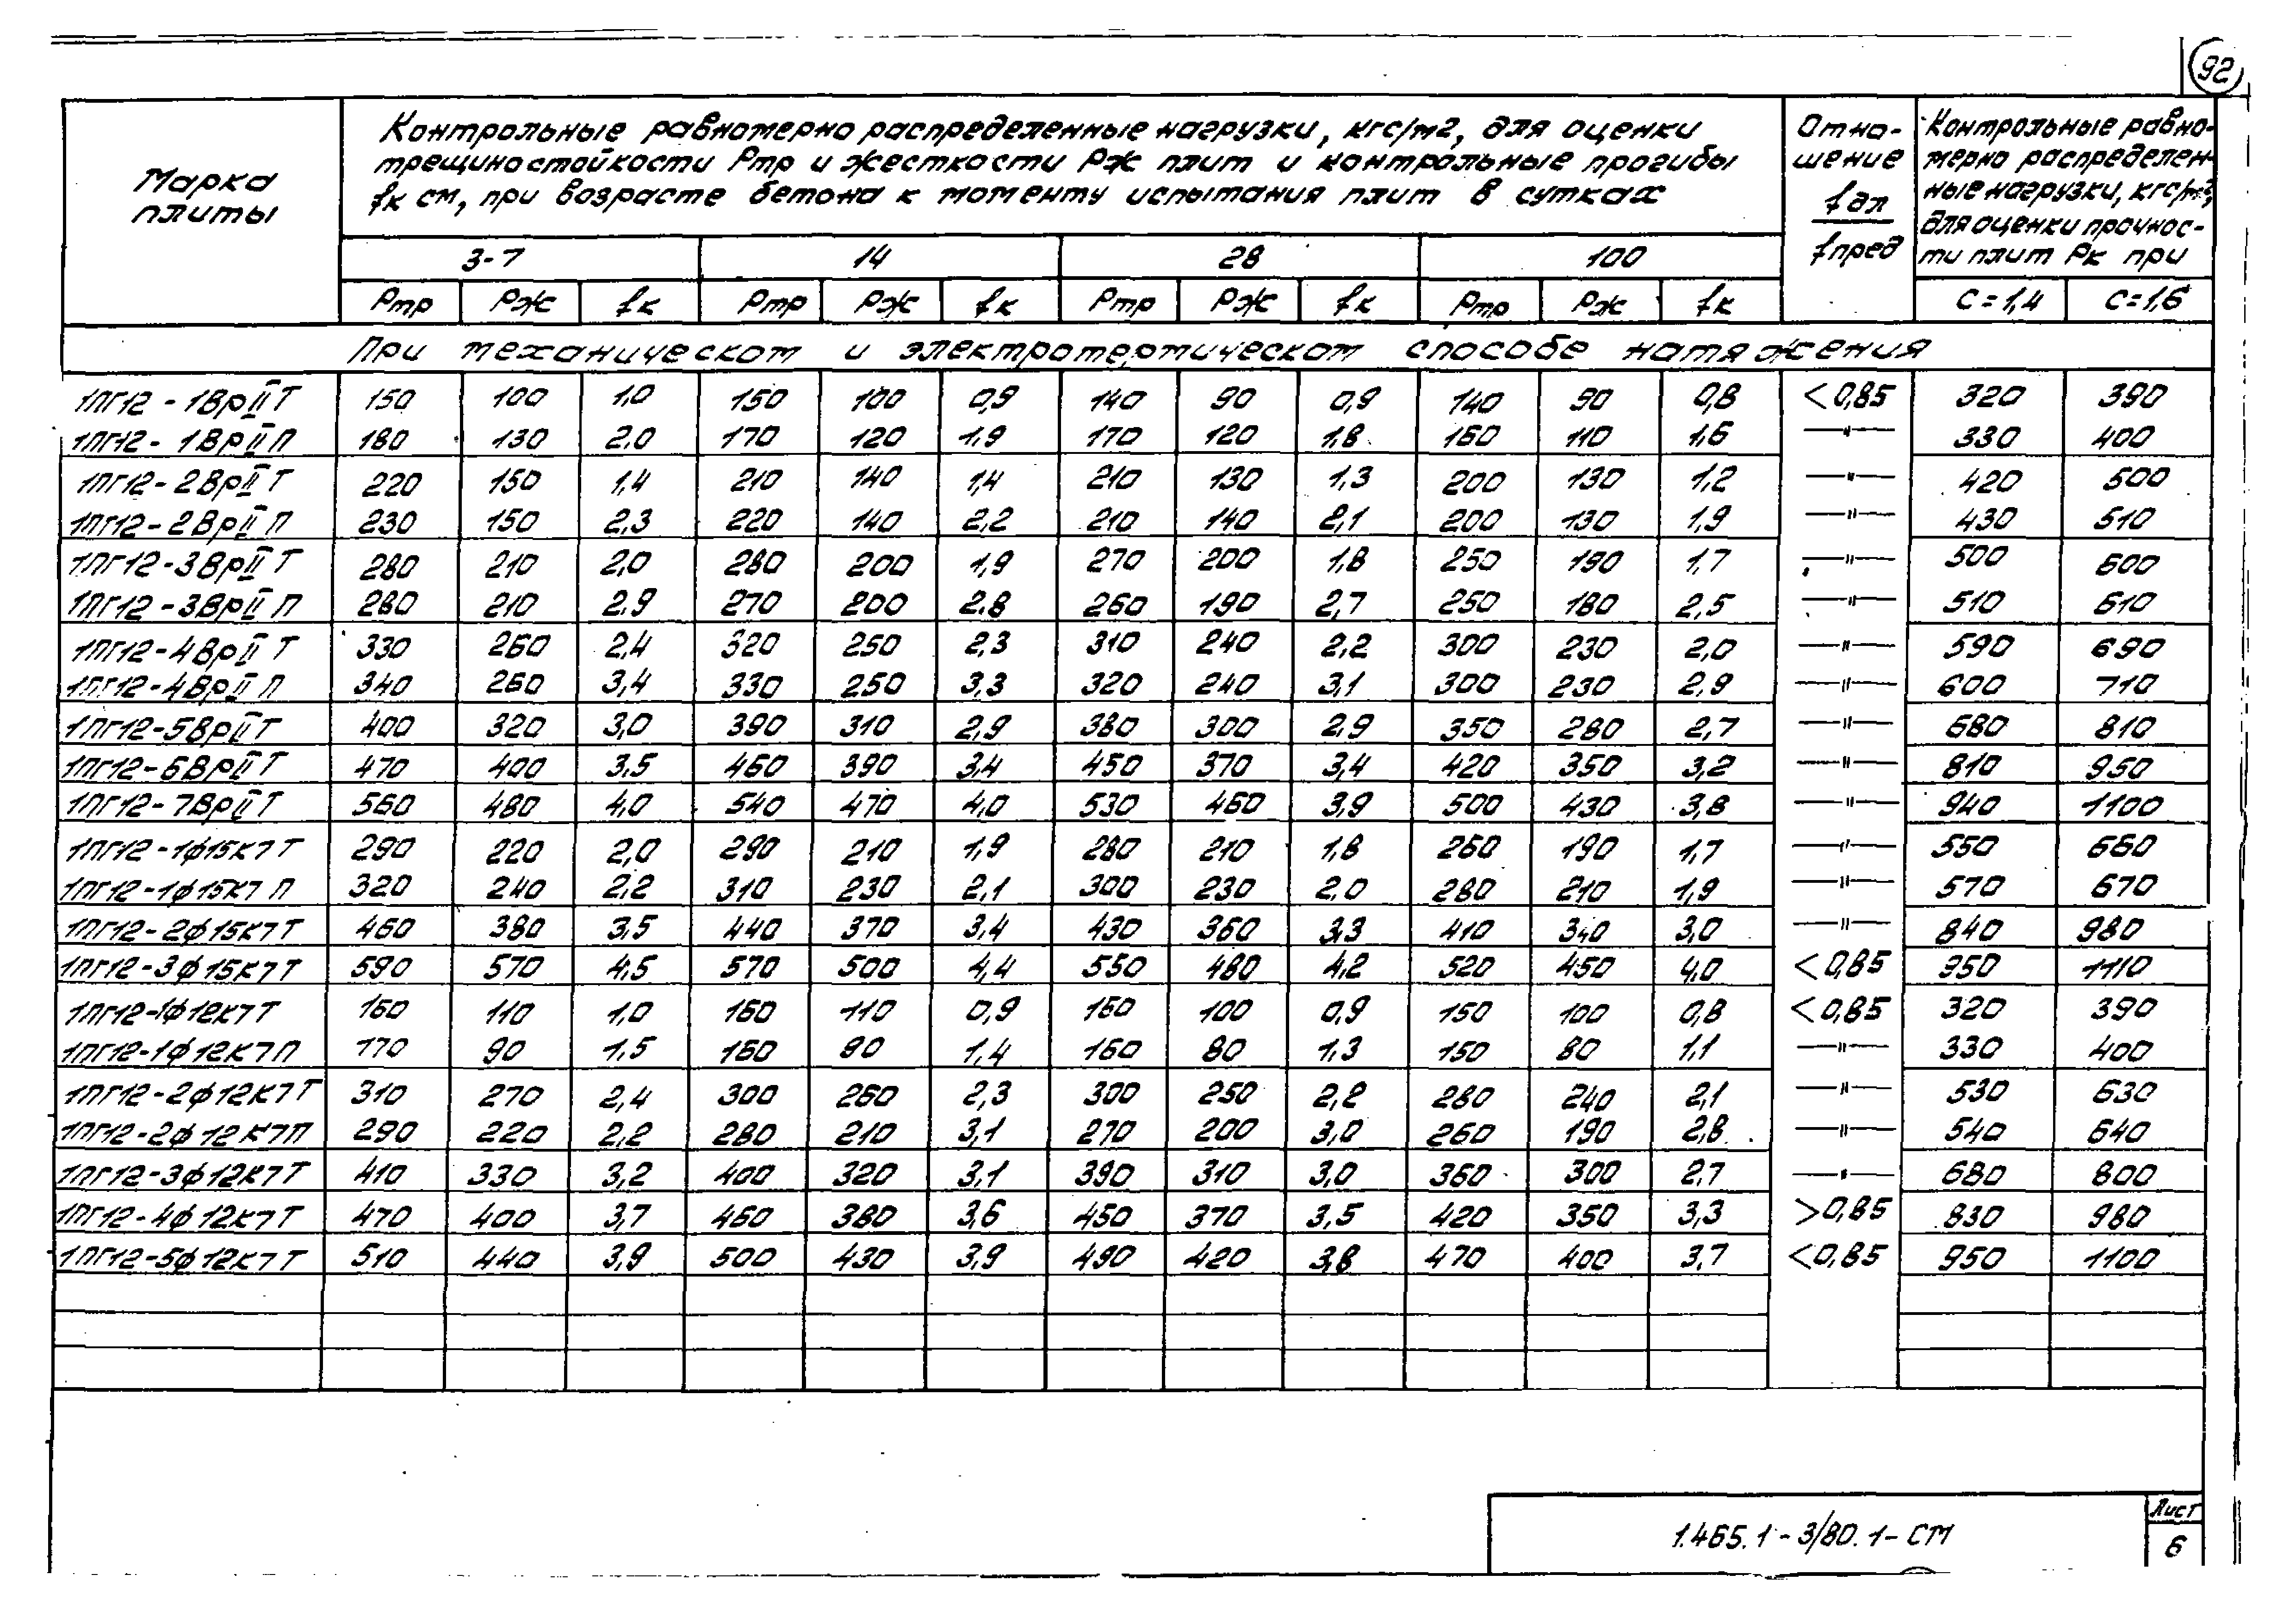 92
Марка
плиты
Контрольные равномерно распределенные нагрузки, кгс/м2, для оценки
трещиностойкости Ртр и жесткости Рж плит и контрольные прогибы
fк см, при возрасте бетона к моменту испытания плит в сутках
Отно-
шение
fдл
fпред
Контрольные равно-
мерно распределен-
ные нагрузки, кгс/м²,
для оценки прочнос-
ти плит Рк при
3-7 14 28 100
Ртр Рж fк Ртр Рж fк Ртр Рж fк Ртр Рж fк С=1,4 С=1,6
При механическом и электротермическом способе натяжения
1ПГ12-1ВрII Т 150 100 1,0 150 100 0,9 140 90 0,9 140 90 0,8 <0,85 320 390
1ПГ12-1ВрII П 180 130 2,0 170 120 1,9 170 120 1,8 160 110 1,6 —"— 330 400
1ПГ12-2ВрII Т 220 150 1,4 210 140 1,4 210 130 1,3 200 130 1,2 —"— 420 500
1ПГ12-2ВрII П 230 150 2,3 220 140 2,2 210 140 2,1 200 130 1,9 —"— 430 510
1ПГ12-3ВрII Т 280 210 2,0 280 200 1,9 270 200 1,8 250 190 1,7 —"— 500 600
1ПГ12-3ВрII П 280 210 2,9 270 200 2,8 260 190 2,7 250 180 2,5 —"— 510 610
1ПГ12-4ВрII Т 330 260 2,4 320 250 2,3 310 240 2,2 300 230 2,0 —"— 590 690
1ПГ12-4ВрII П 340 260 3,4 330 250 3,3 320 240 3,1 300 230 2,9 —"— 600 710
1ПГ12-5ВрII Т 400 320 3,0 390 310 2,9 380 300 2,9 350 280 2,7 —"— 680 810
1ПГ12-6ВрII Т 470 400 3,5 460 390 3,4 450 370 3,4 420 350 3,2 —"— 810 950
1ПГ12-7ВрII Т 560 480 4,0 540 470 4,0 530 460 3,9 500 430 3,8 —"— 940 1100
1ПГ12-1ф15К7 Т 290 220 2,0 290 210 1,9 280 210 1,8 260 190 1,7 —"— 550 660
1ПГ12-1ф15К7 П 320 240 2,2 310 230 2,1 300 230 2,0 280 210 1,9 —"— 570 670
1ПГ12-2ф15К7 Т 460 380 3,5 440 370 3,4 430 360 3,3 410 340 3,0 —"— 840 980
1ПГ12-3ф15К7 Т 590 570 4,5 570 500 4,4 550 480 4,2 520 450 4,0 <0,85 950 1110
1ПГ12-1ф12К7 Т 160 110 1,0 160 110 0,9 150 100 0,9 150 100 0,8 <0,85 320 390
1ПГ12-1ф12К7 П 170 90 1,5 160 90 1,4 160 80 1,3 150 80 1,1 —"— 330 400
1ПГ12-2ф12К7 Т 310 270 2,4 300 260 2,3 300 250 2,2 280 240 2,1 —"— 530 630
1ПГ12-2ф12К7П 290 220 2,2 280 210 3,1 270 200 3,0 260 190 2,8 —"— 540 640
1ПГ12-3ф12К7 Т 410 330 3,2 400 320 3,1 390 310 3,0 360 300 2,7 —"— 680 800
1ПГ12-4ф12К7 Т 470 400 3,7 460 380 3,6 450 370 3,5 420 350 3,3 >0,85 830 980
1ПГ12-5ф12К7 Т 510 440 3,9 500 430 3,9 490 420 3,8 470 400 3,7 <0,85 950 1100
1.465.1-3/80.1-СМ
Лист
6